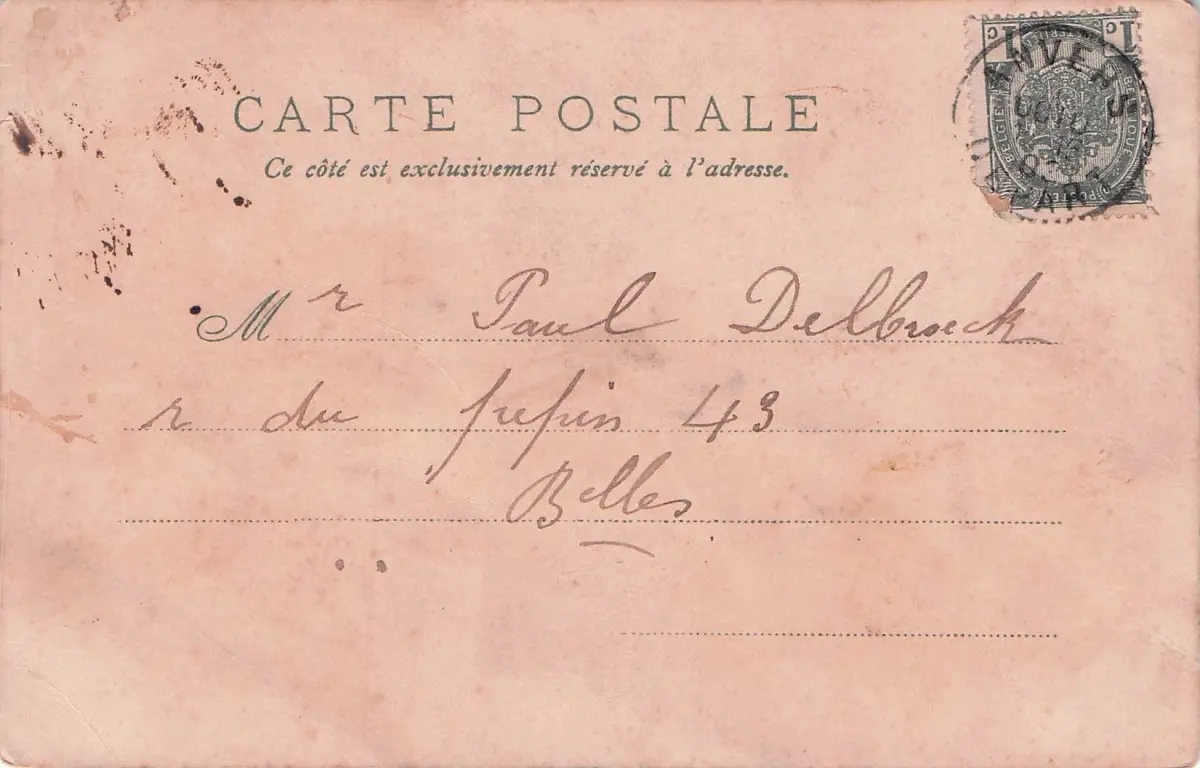 CARTE POSTALE
Ce côté est exclusivement réservé à l'adresse.
1c 1c
BELGIQUE
ANVERS
DEPART
Mr Paul Delbroeck
r du pepin 43
Bxlles